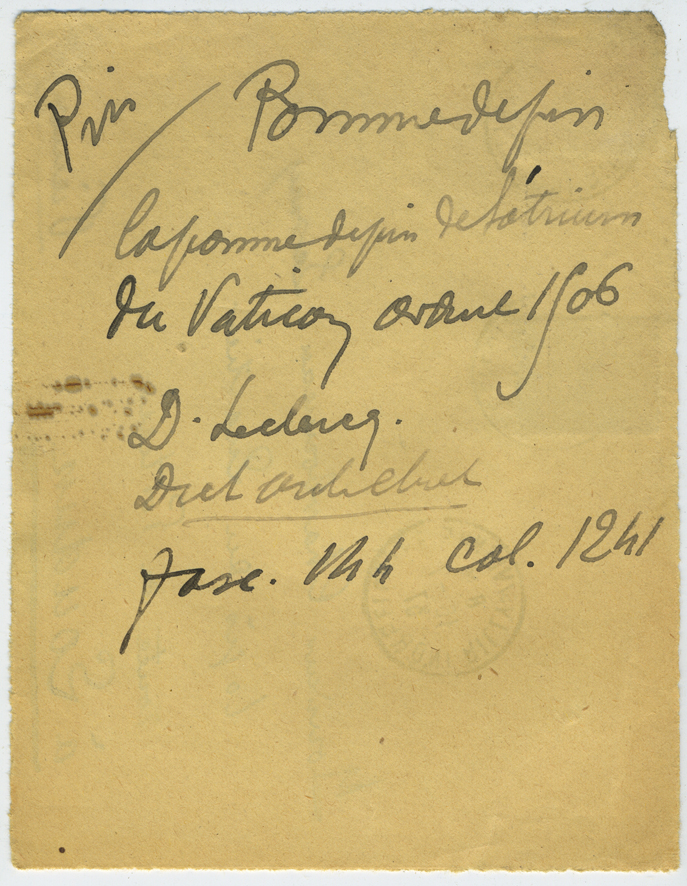 Pin / Pomme de pin
la pomme de pin de l'atrium
du Vatican avant 1506
D. Leclercq.
Dict arch chret
Fasc. 144 col. 1241